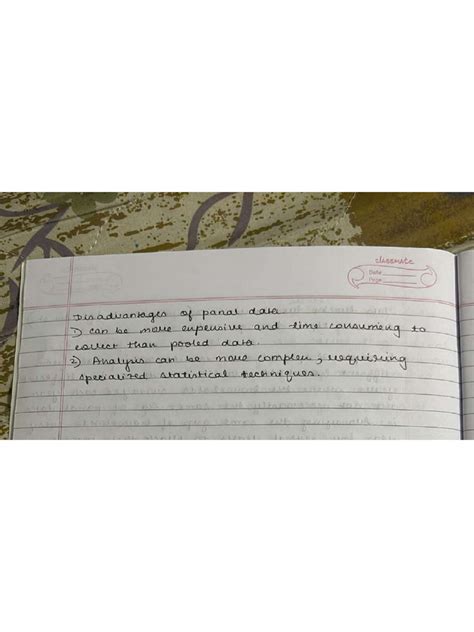 classmate
Date
Page
Disadvantages of panal data
1) can be more expensive and time consuming to
collect than pooled data.
2) Analysis can be more complex, requiring
specialized statistical techniques.